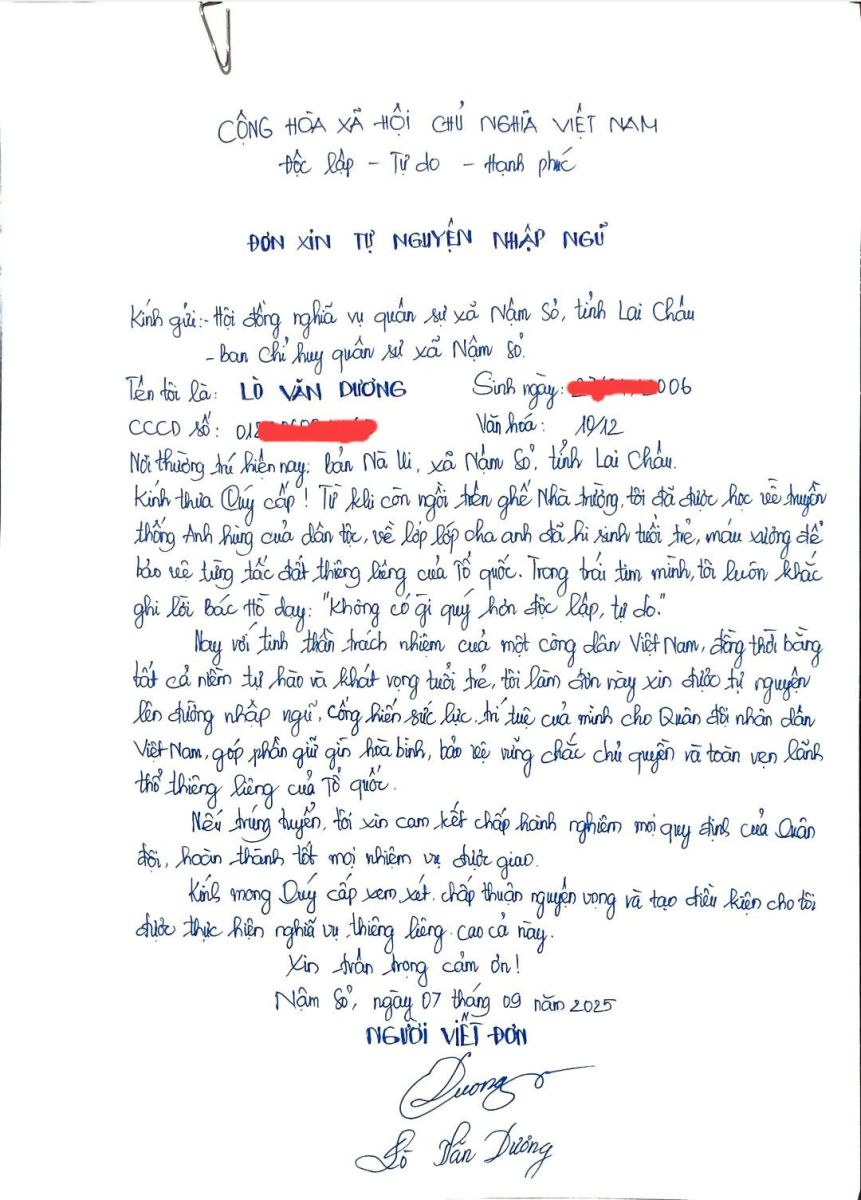 CỘNG HÒA XÃ HỘI CHỦ NGHĨA VIỆT NAM
Độc lập - Tự do - Hạnh phúc
ĐƠN XIN TỰ NGUYỆN NHẬP NGŨ
Kính gửi:- Hội đồng nghĩa vụ quân sự xã Nậm Sỏ, tỉnh Lai Châu
- Ban chỉ huy quân sự xã Nậm Sỏ.
Tên tôi là: LÒ VĂN DƯƠNG Sinh ngày: 006
CCCD số: 01 Văn hóa: 10/12
Nơi thường trú hiện nay: bản Nà Ui, xã Nậm Sỏ, tỉnh Lai Châu.
Kính thưa Quý cấp! Từ khi còn ngồi trên ghế Nhà trường, tôi đã được học về truyền
thống Anh hùng của dân tộc, về lớp lớp cha anh đã hi sinh tuổi trẻ, máu xương để
bảo vệ từng tấc đất thiêng liêng của Tổ quốc. Trong trái tim mình, tôi luôn khắc
ghi lời Bác Hồ dạy: "Không có gì quý hơn độc lập, tự do."
Nay với tinh thần trách nhiệm của một công dân Việt Nam, đồng thời bằng
tất cả niềm tự hào và khát vọng tuổi trẻ, tôi làm đơn này xin được tự nguyện
lên đường nhập ngũ, cống hiến sức lực, trí tuệ của mình cho Quân đội nhân dân
Việt Nam, góp phần giữ gìn hòa bình, bảo vệ vững chắc chủ quyền và toàn vẹn lãnh
thổ thiêng liêng của Tổ quốc.
Nếu trúng tuyển, tôi xin cam kết chấp hành nghiêm mọi quy định của Quân
đội, hoàn thành tốt mọi nhiệm vụ được giao.
Kính mong Quý cấp xem xét, chấp thuận nguyện vọng và tạo điều kiện cho tôi
được thực hiện nghĩa vụ thiêng liêng, cao cả này.
Xin trân trọng cảm ơn!
Nậm Sỏ, ngày 07 tháng 09 năm 2025
NGƯỜI VIẾT ĐƠN
Dương
Lò Văn Dương